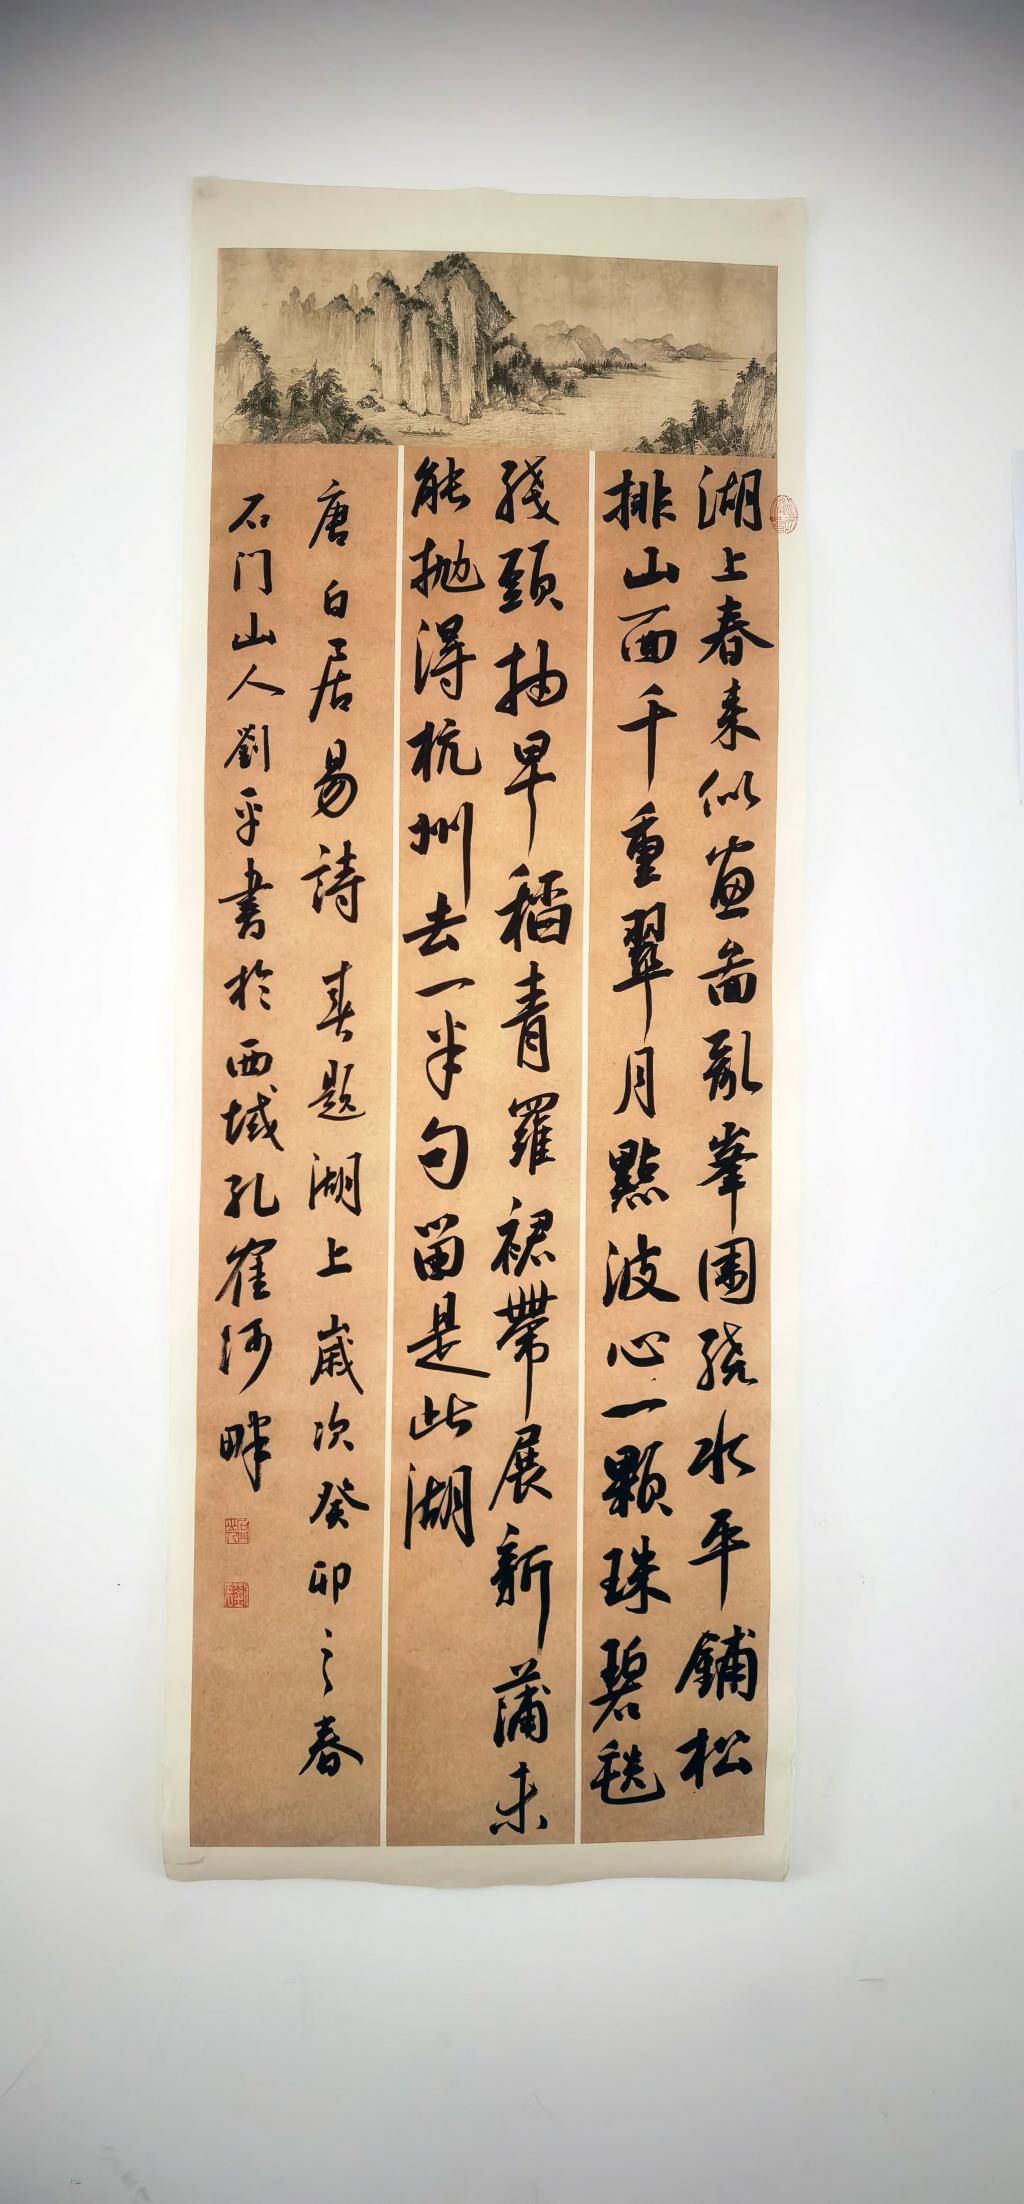 湖上春来似画啚乱峯围绕水平鋪松
排山面千重翠月點波心一颗珠碧毯
线頭抽早稻青羅裙帶展新蒲未
能抛得杭州去一半勾留是此湖
唐白居易詩春題湖上歳次癸卯之春
石门山人劉平書於西域孔雀河畔